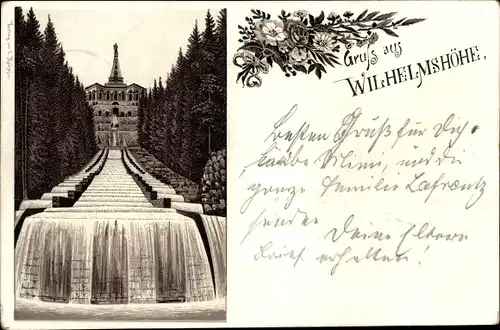 Gruß aus
WILHELMSHÖHE.
Besten Gruß für Dich,
liebe Mimi, und die
ganze Familie Lafrentz
senden
Deine Eltern
Brief erhalten.